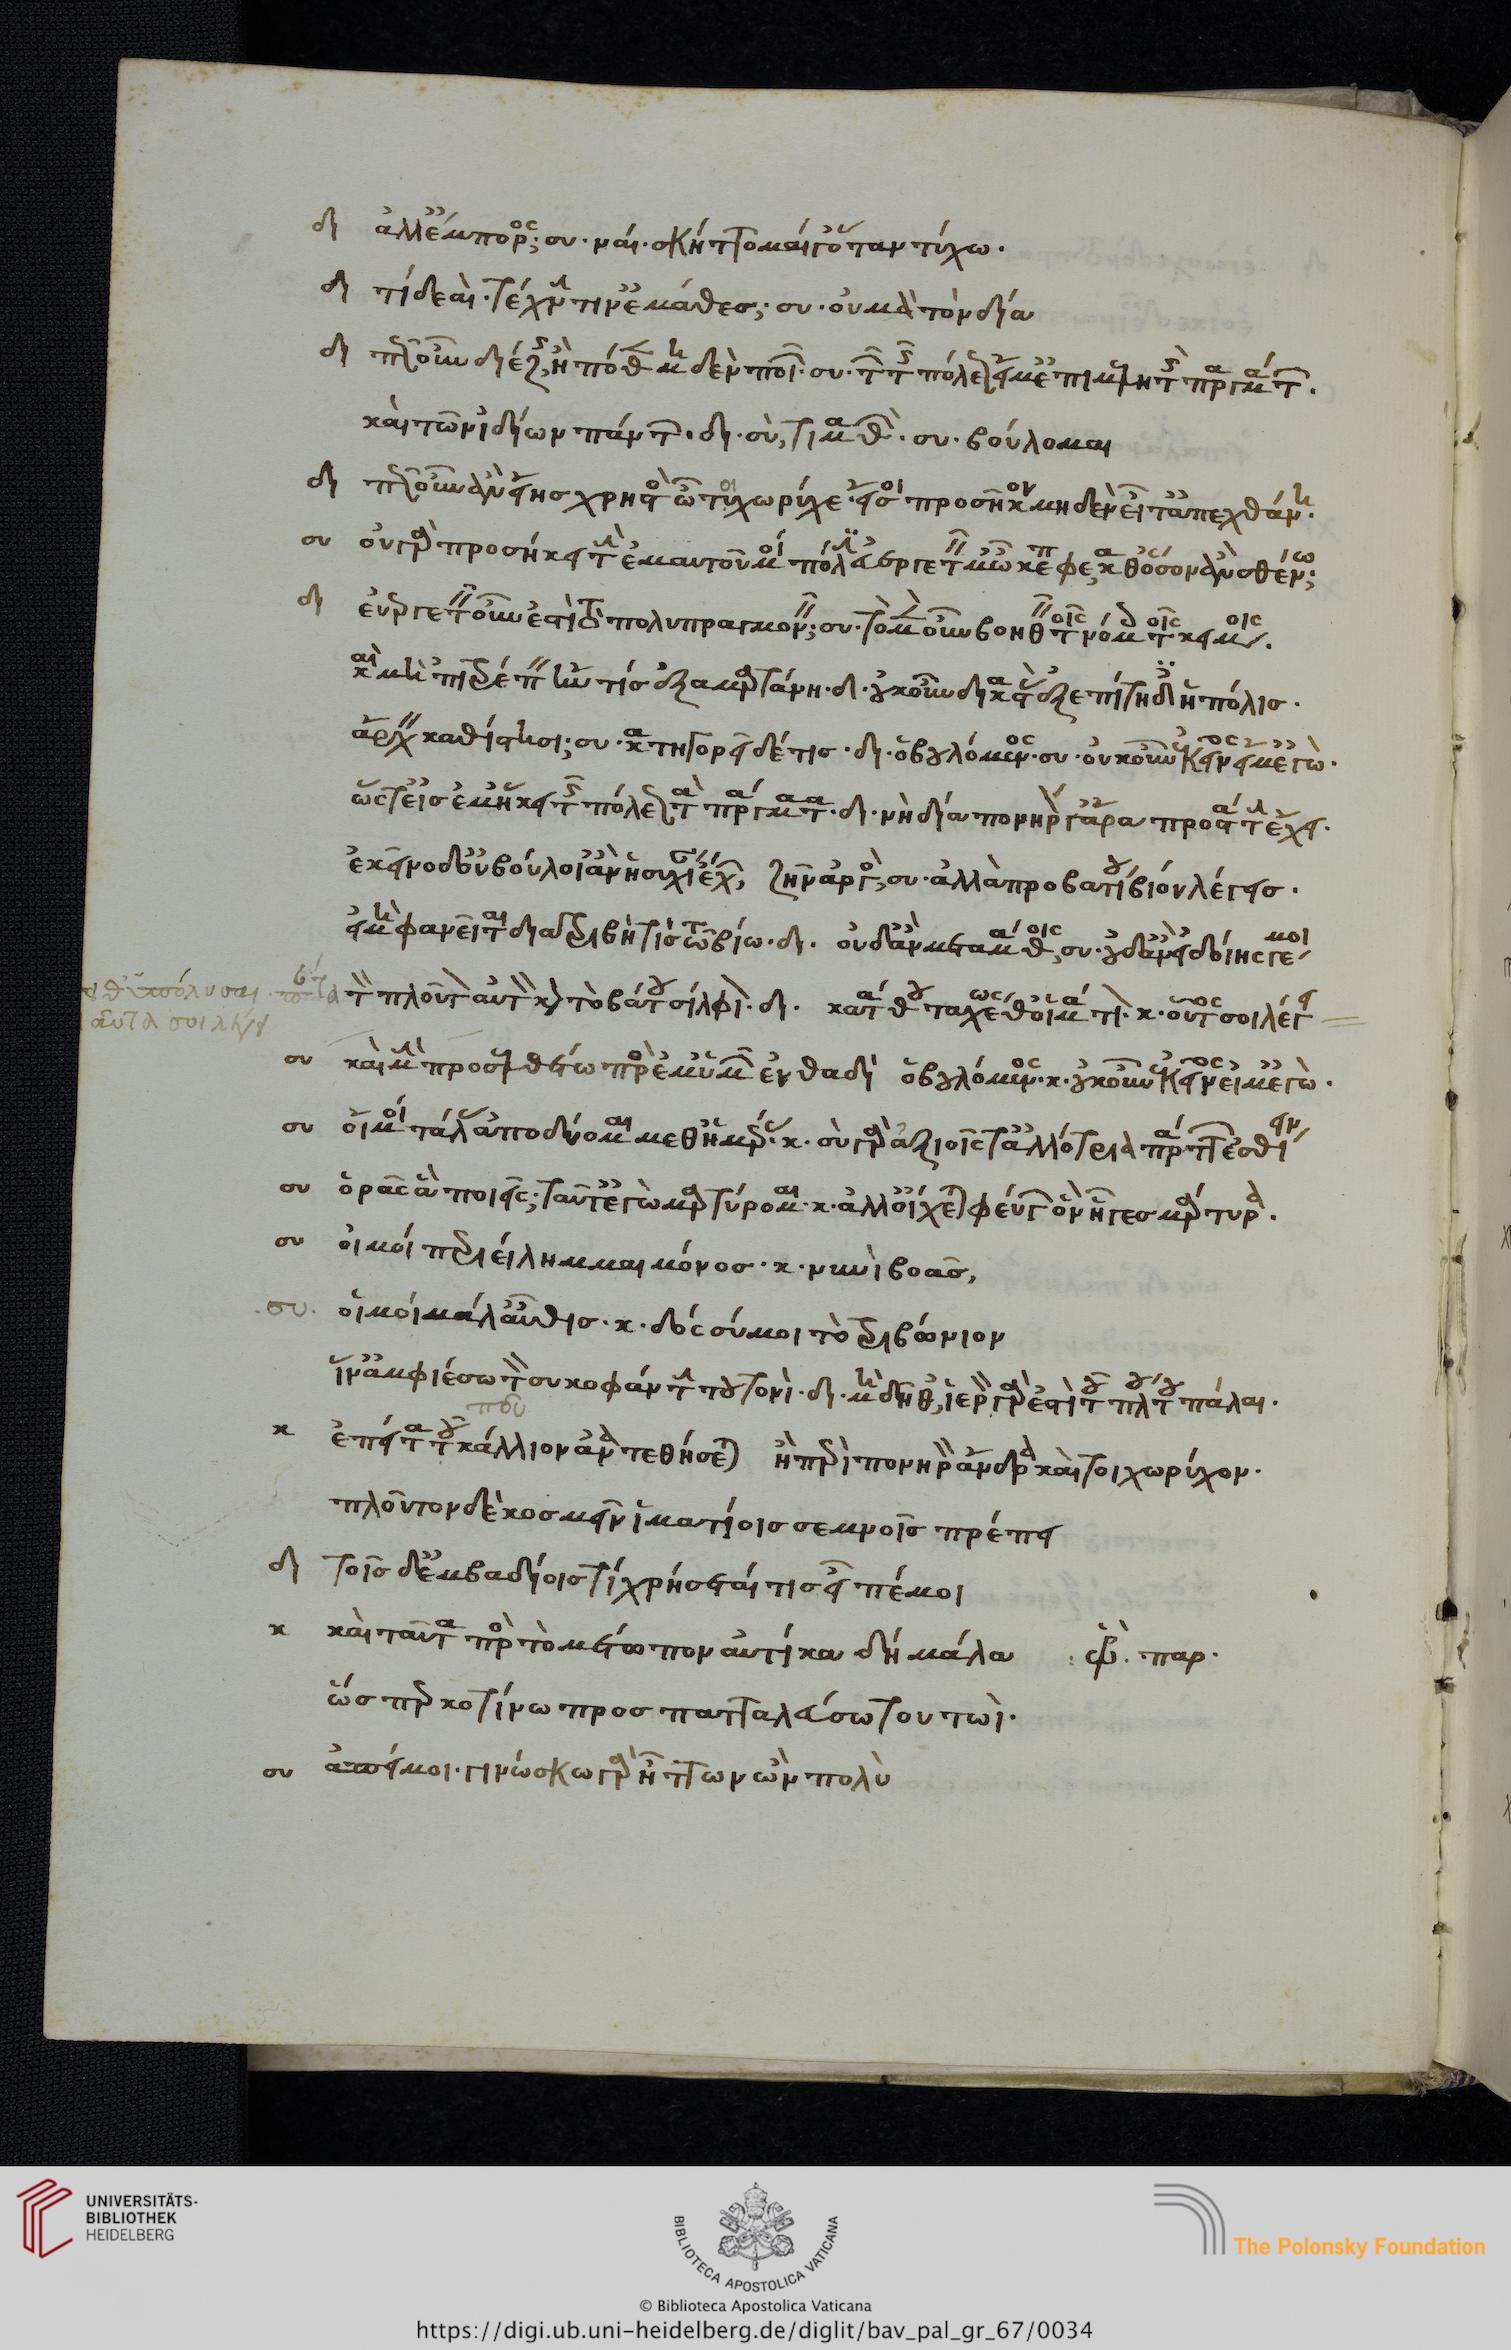 δι ἀλλ' ἔμπορος; συ. ναί. σκήπτομαί γ' ὅταν τύχω.
δι τί δεαὶ. τέχνην τιν' ἔμαθες; συ. οὐ μὰ τὸν δία
δι πῶς οὖν διέζης ἢ πόθεν μηδὲν ποιῶν. συ. τῶν τῆς πόλεως εἴμ' ἐπιμελητὴς πραγμάτων.
καὶ τῶν ἰδίων πάντων. δι. σύ, τί μαθὼν. συ. βούλομαι
δι πῶς οὖν ἂν εἴης χρηστὸς ὦ τοιχωρύχε. εἴ σοι προσῆκον μηδὲν εἶτ' ἀπεχθάνη.
συ οὐ γὰρ προσήκει τὴν ἐμαυτοῦ μοι πόλιν εὐεργετεῖν μ' ὦ κέπφε, καθ' ὅσον ἂν σθένω;
δι εὐεργετεῖν οὖν ἐστὶ τὸ πολυπραγμονεῖν; συ. τὸ μὲν οὖν βοηθεῖν τοῖς νόμοις τοῖς κειμένοις.
καὶ μὴ πιτρέπειν ἤν τις ἐξαμαρτάνη. δι. οὐκοῦν δικαστὰς ἐξεπίτηδες ἡ πόλις.
ἄρχειν καθίστησι; συ. κατηγορεῖ δέ τις. δι. ὁ βουλόμενος. συ. οὐκοῦν ἐκεῖνος εἴμ' ἐγὼ.
ὥστ' εἰς ἔμ' ἥκει τῆς πόλεως τὰ πράγματα. δι. νὴ δία πονηρὸν γ' ἄρα προστάτην ἔχει.
ἐκεῖνο δ' οὐ βούλοι' ἂν ἡσυχίαν ἔχων, ζῆν ἀργὸς; συ. ἀλλὰ προβατίου βίον λέγεις.
εἰ μὴ φανεῖται διατριβή τις τῶ βίω. δι. οὐδ' ἂν μεταμάθοις, συ. οὐδ' ἂν εἰ δοίης γέ μοι
τὸν πλοῦτον αὐτὸν καὶ τὸ βάτου σίλφιον. δι. κατάθου ταχέως θοἰμάτιον. κ. οὗτος σοι λέγει
συ καὶ μὴν προσελθέτω πρὸς ἔμ' ὑμῶν ἐνθαδὶ ὁ βουλόμενος. κ. οὐκοῦν ἐκεῖνος εἴμ' ἐγὼ.
συ οἴμοι τάλας ἀποδύομαι μεθ' ἡμέραν. κ. σὺ γὰρ ἀξιοῖς τἀλλότρια πράττων ἐσθίειν
συ ὁρᾶς ἃ ποιεῖς; ταῦτ' ἐγὼ μαρτύρομαι. κ. ἀλλ' οἴχεται φεύγων ὃν ἦγες μάρτυρα.
συ οἴμοι περιείλημμαι μόνος. κ. νυνὶ βοᾶς,
συ. οἴμοι μάλ' αὖθις. κ. δός σύ μοι τὸ τριβώνιον
ἵν' ἀμφιέσω τὸν συκοφάντην τουτονὶ. δι. μὴ δῆθ', ἱερὸν γὰρ ἐστὶ τοῦ πλούτου πάλαι.
κ ἔπειτα ποῦ κάλλιον ἀνατεθήσεται ἢ περὶ πονηρὸν ἄνδρα καὶ τοιχωρύχον.
πλοῦτον δὲ κοσμεῖν ἱματίοις σεμνοῖς πρέπει
δι τοῖς δ' ἐμβαδίοις τί χρήσεταί τις εἶπέ μοι
κ καὶ ταῦτα πρὸς τὸ μέτωπον αὐτίκα δὴ μάλα : παρ.
ὥσπερ κοτίνω προσπατταλεύσω τουτωὶ.
συ ἄπειμι. γινώσκω γὰρ ἥττων ὢν πολὺ
UNIVERSITÄTS-
BIBLIOTHEK
HEIDELBERG
BIBLIOTECA APOSTOLICA VATICANA
The Polonsky Foundation
© Biblioteca Apostolica Vaticana
https://digi.ub.uni-heidelberg.de/diglit/bav_pal_gr_67/0034